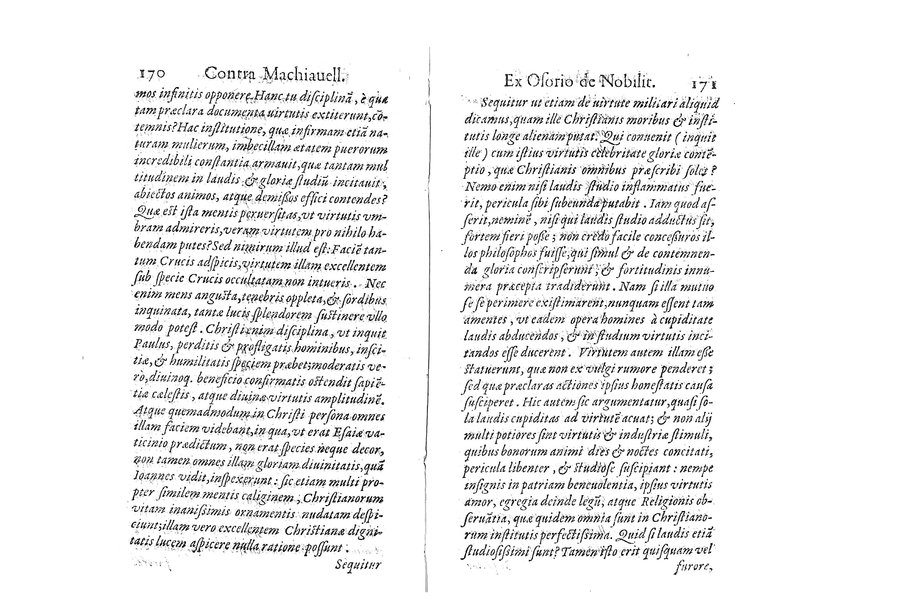 170 Contra Machiauell.
mos infinitis opponere. Hanc tu disciplinã, è qua
tam præclara documenta virtutis extiterunt, cõ-
temnis? Hac institutione, quæ infirmam etiã na-
turam mulierum, imbecillam ætatem puerorum
incredibili constantia armauit, quæ tantam mul
titudinem in laudis & gloriæ studiũ incitauit,
abiectos animos, atque demissos effici contendes?
Quæ est ista mentis peruersitas, vt virtutis vm-
bram admireris, veram virtutem pro nihilo ha-
bendam putes? Sed nimirum illud est: Faciẽ tan-
tum Crucis adspicis, virtutem illam excellentem
sub specie Crucis occultatam non intueris. Nec
enim mens angusta, tenebris oppleta, & sordibus
inquinata, tantæ lucis splendorem sustinere vllo
modo potest. Christi enim disciplina, vt inquit
Paulus, perditis & profligatis hominibus, insci-
tiæ, & humilitatis speciem præbet; moderatis ve-
rò, diuinoq. beneficio confirmatis ostendit sapiẽ-
tiæ cælestis, atque diuinæ virtutis amplitudinẽ.
Atque quemadmodum in Christi persona omnes
illam faciem videbant, in qua, vt erat Esaiæ va-
ticinio prædictum, non erat species neque decor,
non tamen omnes illam gloriam diuinitatis, quã
Ioannes vidit, inspexerunt: sic etiam multi pro-
pter similem mentis caliginem, Christianorum
vitam inanissimis ornamentis nudatam despi-
ciunt; illam vero excellentem Christianæ digni-
tatis lucem aspicere nulla ratione possunt.
Sequitur
Ex Osorio de Nobilit. 171
Sequitur ut etiam de uirtute militari aliquid
dicamus, quam ille Christianis moribus & insti-
tutis longe alienam putat. Qui conuenit (inquit
ille) cum istius virtutis celebritate gloriæ contẽ-
ptio, quæ Christianis omnibus præscribi solet?
Nemo enim nisi laudis studio inflammatus fue-
rit, pericula sibi subeunda putabit. Iam quod as-
serit, neminẽ, nisi qui laudis studio adductus sit,
fortem fieri posse; non credo facile concessuros il-
los philosophos fuisse, qui simul & de contemnen-
da gloria conscripserunt, & fortitudinis innu-
mera præcepta tradiderunt. Nam si illa mutuo
se se perimere existimarent, nunquam essent tam
amentes, vt eadem opera homines à cupiditate
laudis abducendos, & in studium virtutis inci-
tandos esse ducerent. Virtutem autem illam esse
statuerunt, quæ non ex vulgi rumore penderet;
sed quæ præclaras actiones ipsius honestatis causa
susciperet. Hic autem sic argumentatur, quasi so-
la laudis cupiditas ad virtutẽ acuat; & non alij
multi potiores sint virtutis & industriæ stimuli,
quibus bonorum animi dies & noctes concitati,
pericula libenter, & studiose suscipiant: nempe
insignis in patriam beneuolentia, ipsius virtutis
amor, egregia deinde legũ, atque Religionis ob-
seruãtia, quæ quidem omnia sunt in Christiano-
rum institutis perfectissima. Quid si laudis etiã
studiosissimi sunt? Tamen isto erit quisquam vel
furore,